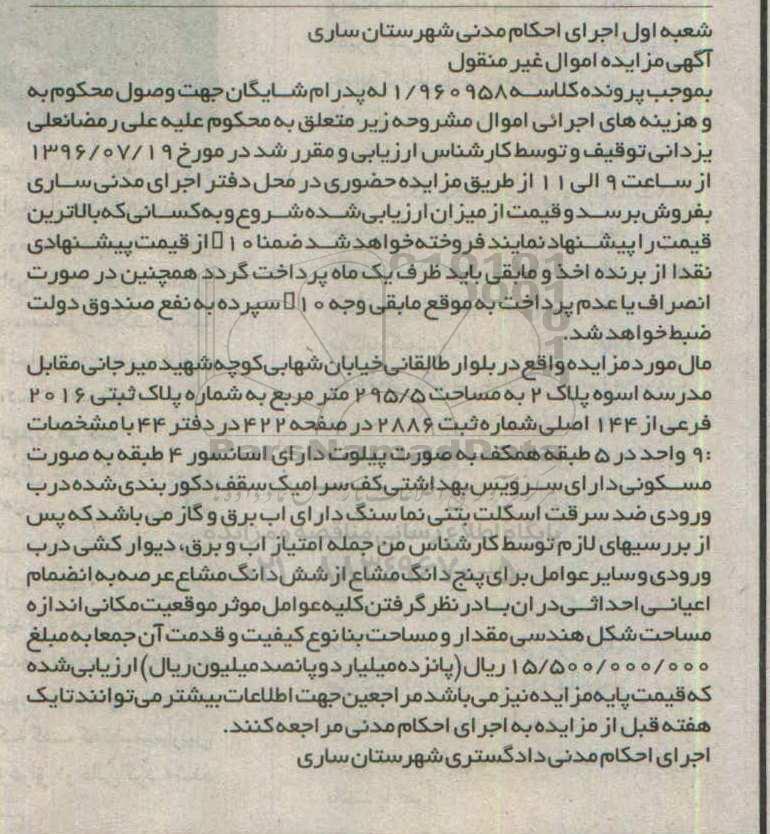 شعبه اول اجرای احکام مدنی شهرستان ساری
آگهی مزایده اموال غیر منقول
بموجب پرونده کلاسه ۱/۹۶۰۹۵۸ له پدرام شایگان جهت وصول محکوم به
و هزینه های اجرائی اموال مشروحه زیر متعلق به محکوم علیه علی رمضانعلی
یزدانی توقیف و توسط کارشناس ارزیابی و مقرر شد در مورخ ۱۳۹۶/۰۷/۱۹
از ساعت ۹ الی ۱۱ از طریق مزایده حضوری در محل دفتر اجرای مدنی ساری
بفروش برسد و قیمت از میزان ارزیابی شده شروع و به کسانی که بالاترین
قیمت را پیشنهاد نمایند فروخته خواهد شد ضمنا ۱۰٪ از قیمت پیشنهادی
نقدا از برنده اخذ و مابقی باید ظرف یک ماه پرداخت گردد همچنین در صورت
انصراف یا عدم پرداخت به موقع مابقی وجه ۱۰٪ سپرده به نفع صندوق دولت
ضبط خواهد شد.
مال مورد مزایده واقع در بلوار طالقانی خیابان شهابی کوچه شهید میرجانی مقابل
مدرسه اسوه پلاک ۲ به مساحت ۲۹۵/۵ متر مربع به شماره پلاک ثبتی ۲۰۱۶
فرعی از ۱۴۴ اصلی شماره ثبت ۲۸۸۶ در صفحه ۴۲۲ در دفتر ۴۴ با مشخصات
:۹ واحد در ۵ طبقه همکف به صورت پیلوت دارای اسانسور ۴ طبقه به صورت
مسکونی دارای سرویس بهداشتی کف سرامیک سقف دکور بندی شده درب
ورودی ضد سرقت اسکلت بتنی نما سنگ دارای اب برق و گاز می باشد که پس
از بررسیهای لازم توسط کارشناس من جمله امتیاز اب و برق، دیوار کشی درب
ورودی و سایر عوامل برای پنج دانگ مشاع از شش دانگ مشاع عرصه به انضمام
اعیانی احداثی در ان با در نظر گرفتن کلیه عوامل موثر موقعیت مکانی اندازه
مساحت شکل هندسی مقدار و مساحت بنا نوع کیفیت و قدمت آن جمعا به مبلغ
۱۵/۵۰۰/۰۰۰/۰۰۰ ریال (پانزده میلیارد و پانصد میلیون ریال) ارزیابی شده
که قیمت پایه مزایده نیز می باشد مراجعین جهت اطلاعات بیشتر می توانند تا یک
هفته قبل از مزایده به اجرای احکام مدنی مراجعه کنند.
اجرای احکام مدنی دادگستری شهرستان ساری
ParsNamadData